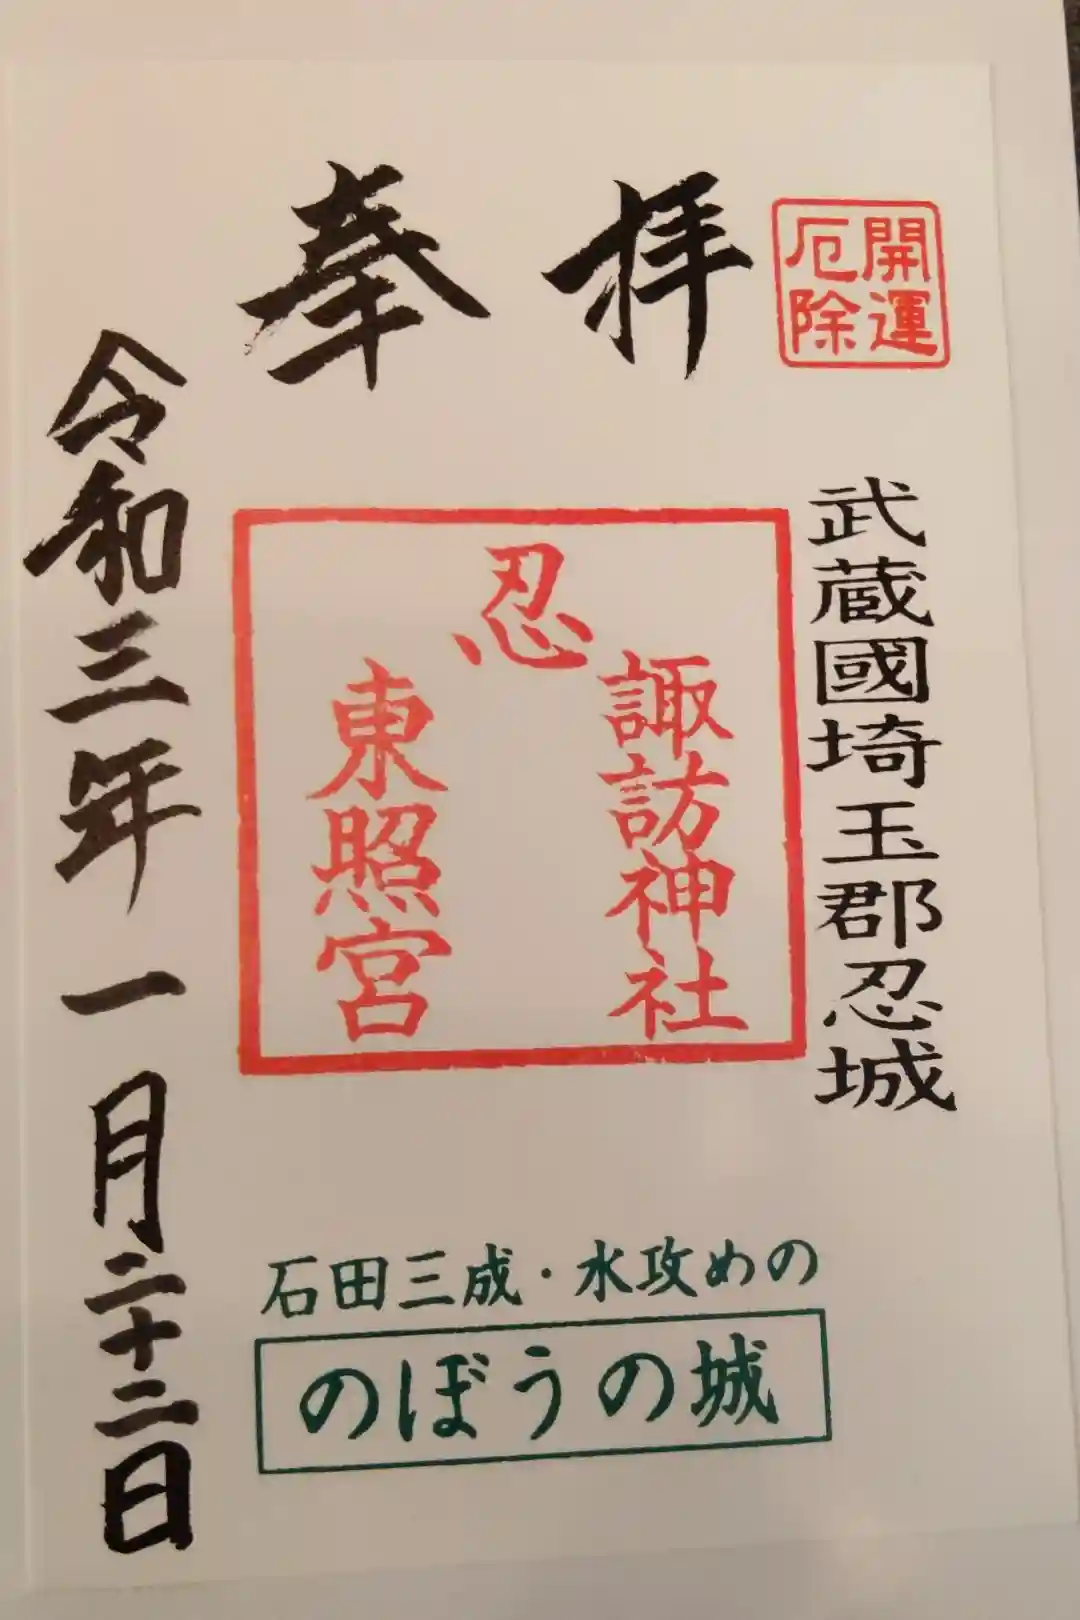 開運
厄除
奉拝
武蔵國埼玉郡忍城
忍
諏訪神社
東照宮
令和三年一月二十二日
石田三成・水攻めの
のぼうの城